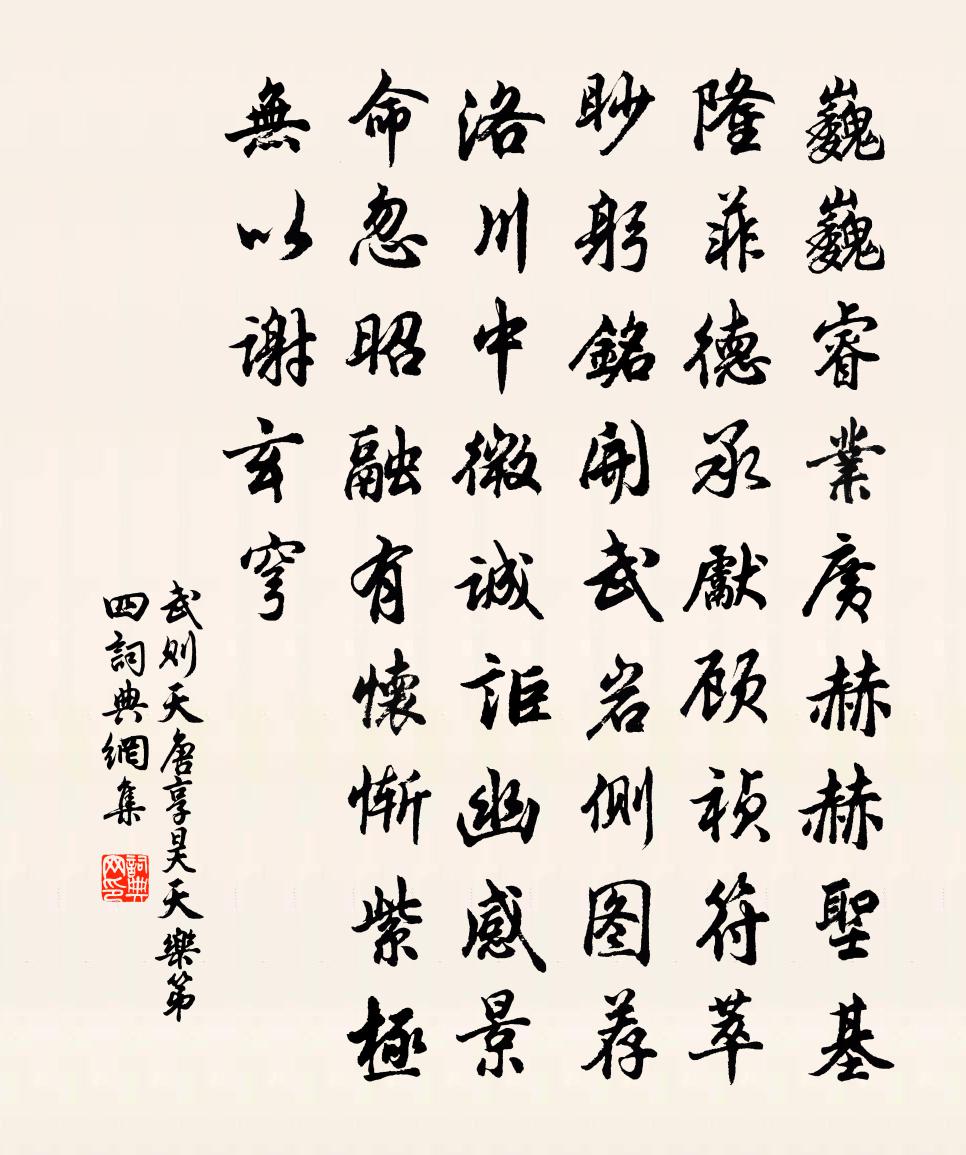 巍巍睿業廣赫赫聖基
隆菲德承獻顾禎符萃
眇躬銘開武岩側图荐
洛川中微誠詎幽感景
命忽昭融有懷慚紫極
無以謝玄穹
武则天唐享昊天樂第
四詞典網集
詞典
网印